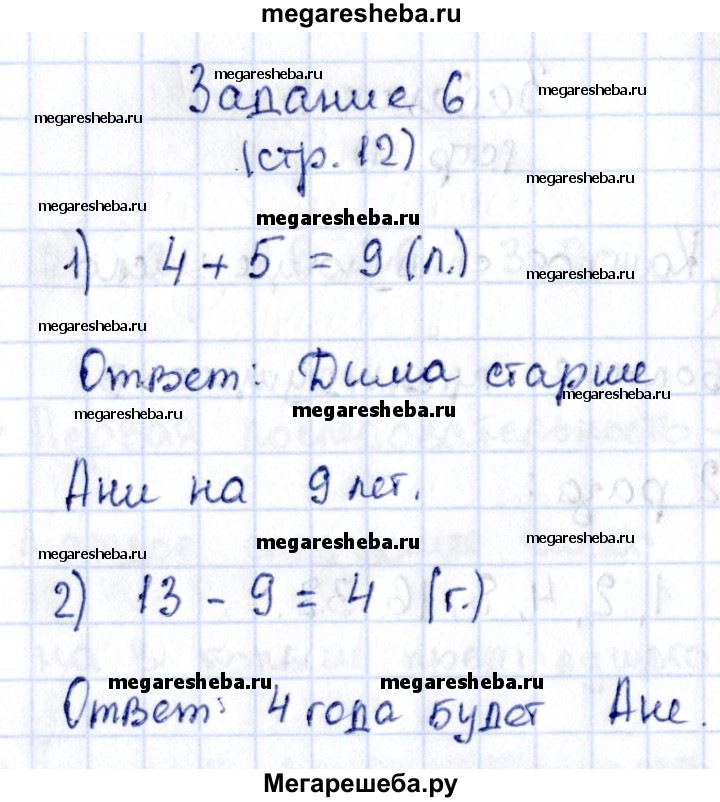 megaresheba.ru
megaresheba.ru
megaresheba.ru
megaresheba.ru
Задание 6
(стр. 12)
megaresheba.ru
megaresheba.ru
megaresheba.ru
1) 4 + 5 = 9 (л.)
megaresheba.ru
megaresheba.ru
Ответ: Дима старше
megaresheba.ru
megaresheba.ru
megaresheba.ru
Ани на 9 лет.
megaresheba.ru
megaresheba.ru
megaresheba.ru
2) 13 - 9 = 4 (г.)
megaresheba.ru
megaresheba.ru
Ответ: 4 года будет Ане.
Мегарешеба.ру